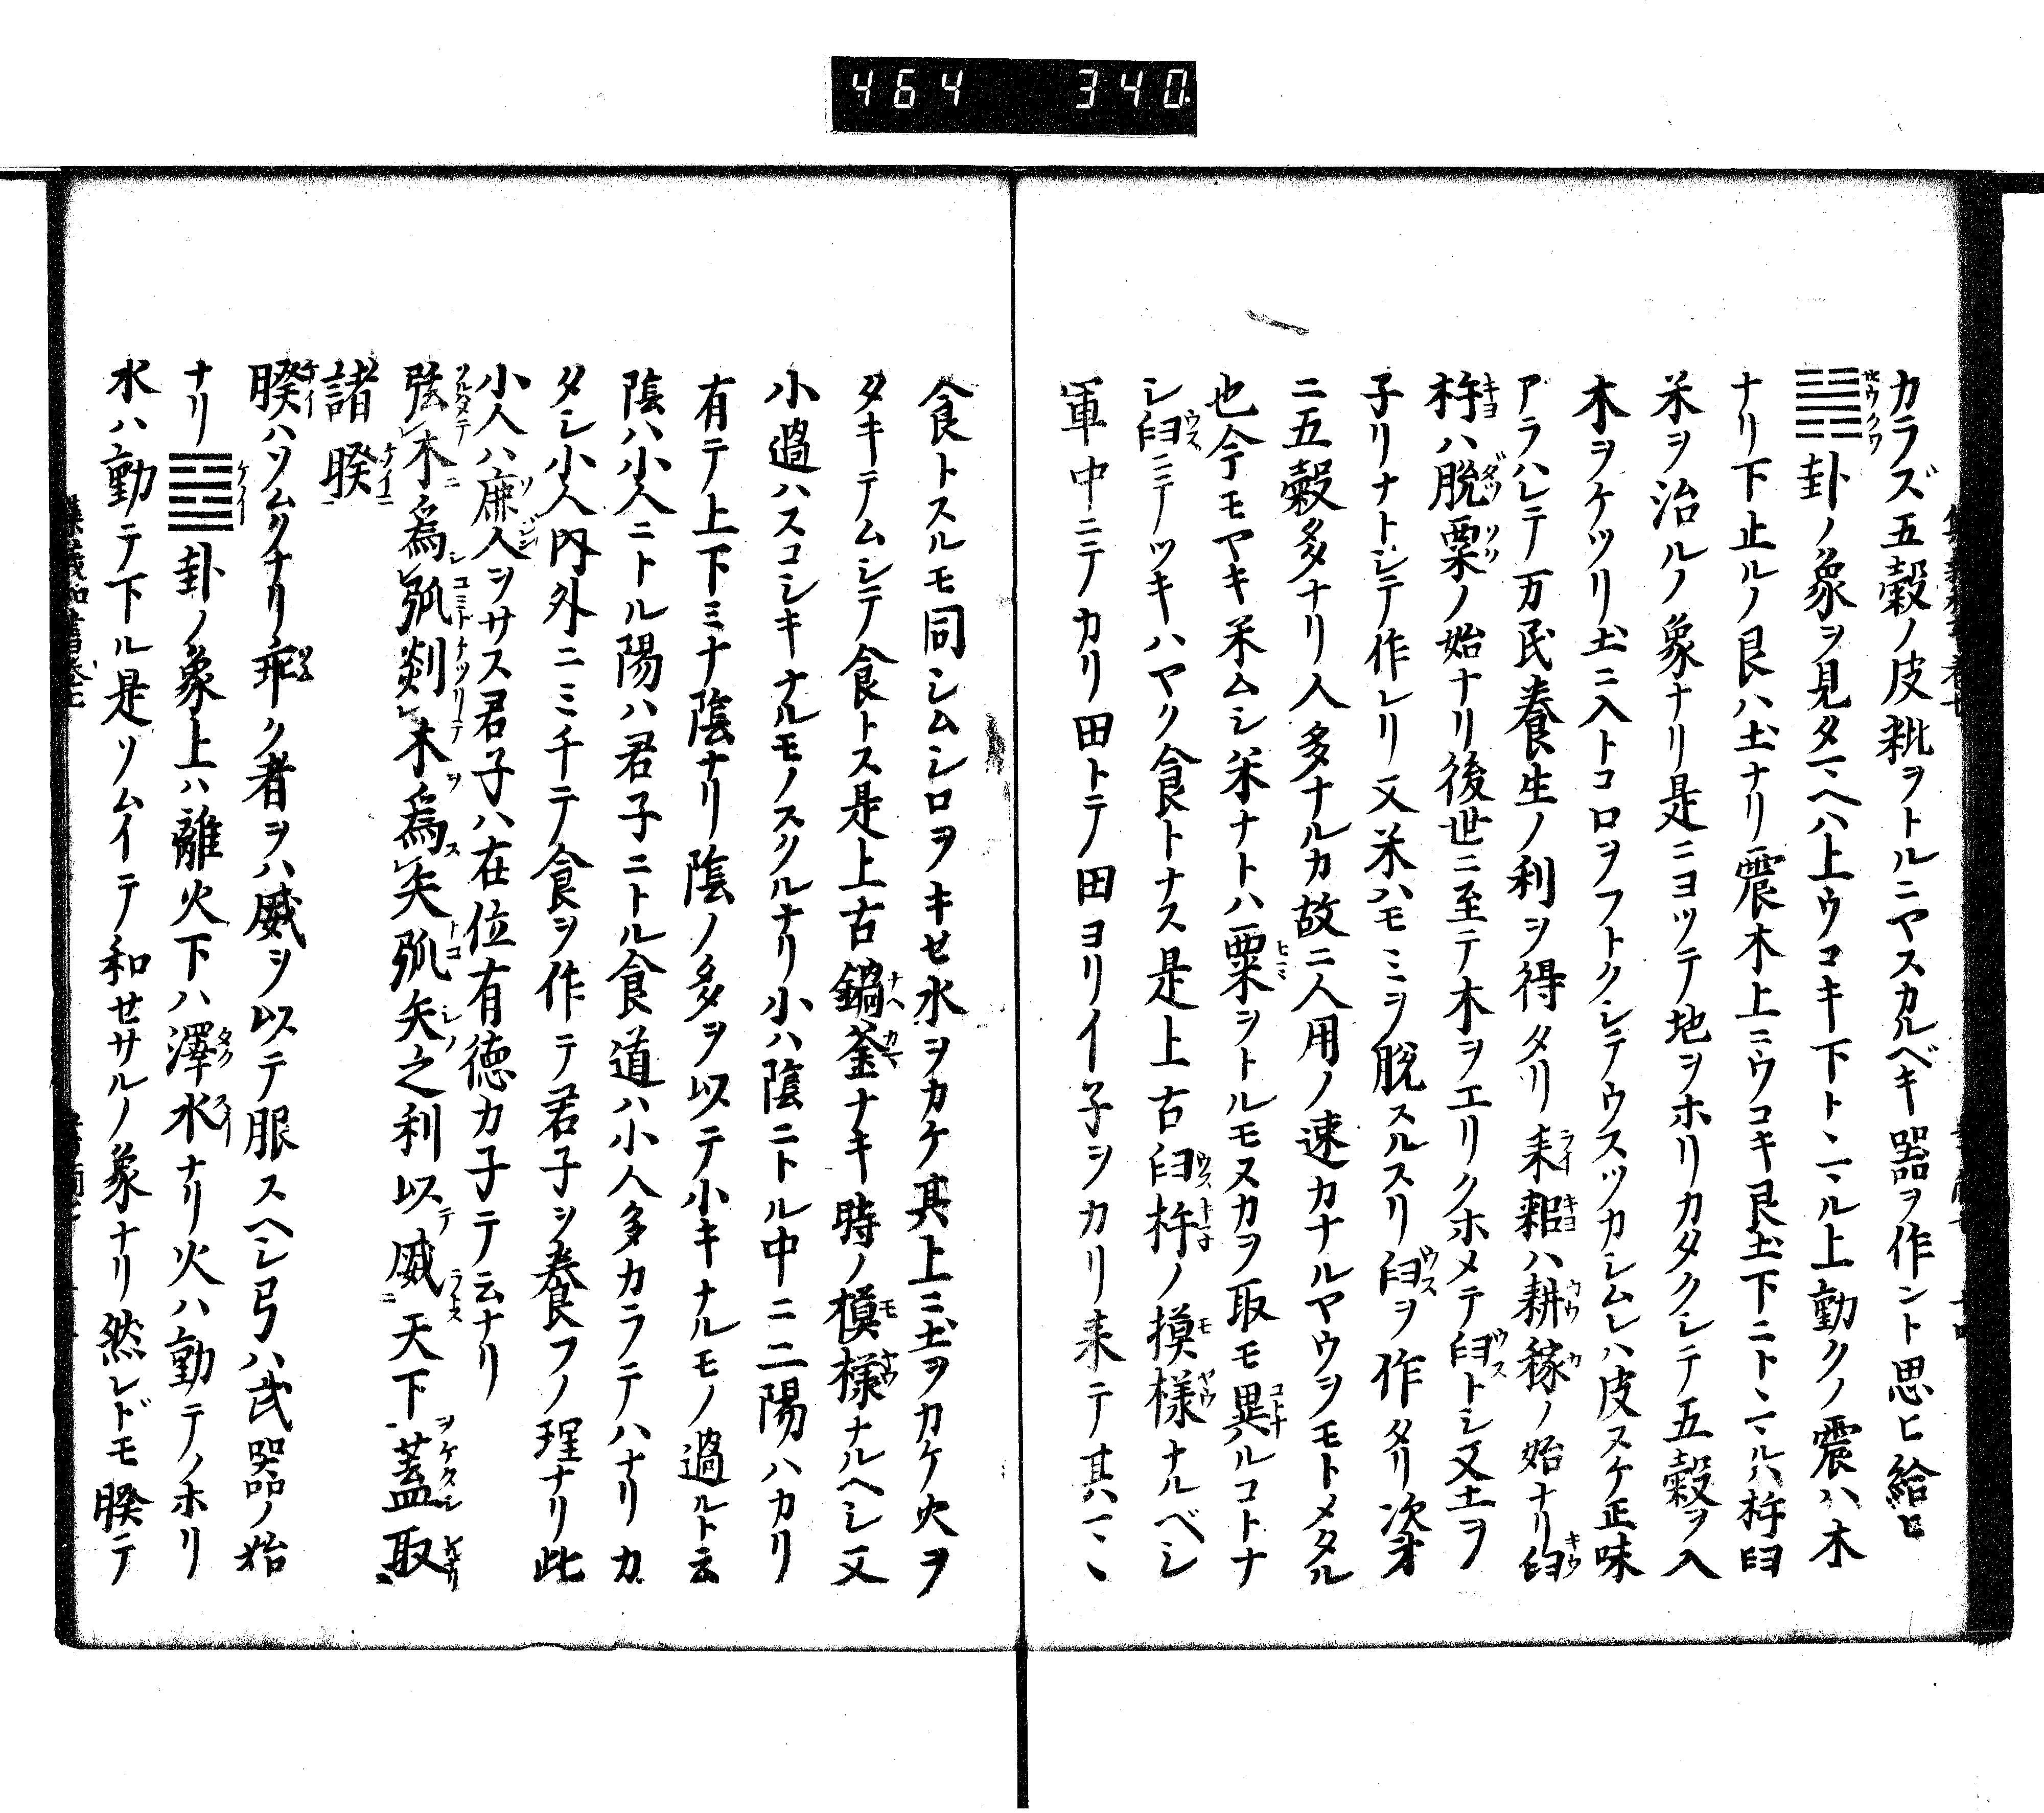 464 340
カラズ五穀ノ皮粃ヲトルニヤスカルベキ器ヲ作ント思ヒ給ヒ
䷽卦ノ象ヲ見タマヘハ上ウコキ下トヽマル上動クノ震ハ木
ナリ下止ルノ艮ハ土ナリ震木上ニウコキ艮土下ニトヽマルハ杵臼
米ヲ治ルノ象ナリ是ニヨツテ地ヲホリカタクシテ五穀ヲ入
木ヲケツリ土ニ入トコロヲフトクシテウスツカシムレハ皮スケ正味
アラハレテ万民養生ノ利ヲ得タリ耒耜ハ耕稼ノ始ナリ臼
杵ハ脱粟ノ始ナリ後世ニ至テ木ヲエリクホメテ臼トシ又土ヲ
子リナトシテ作レリ又米ハモミヲ脱スルスリ臼ヲ作タリ次才
ニ五穀多ナリ人多ナルカ故ニ人用ノ速カナルヤウヲモトメタル
也今モヤキ米ムシ米ナトハ粟ヲトルモヌカヲ取モ異ルコトナ
シ臼ニテツキハヤク食トナス是上古臼杵ノ摸様ナルベシ
軍中ニテカリ田トテ田ヨリイ子ヲカリ来テ其ハヽ
食トスルモ同シムシロヲキセ水ヲカケ其上ニ土ヲカケ火ヲ
タキテムシテ食トス是上古鍋釜ナキ時ノ模様ナルヘシ又
小過ハスコシキナルモノスクルナリ小ハ陰ニトル中ニ二陽ハカリ
有テ上下ミナ陰ナリ陰ノ多ヲ以テ小キナルモノ過ルト云
陰ハ小人ニトル陽ハ君子ニトル食道ハ小人多カラテハナリカ
タシ小人内外ニミチテ食ヲ作テ君子ヲ養フノ理ナリ此
小人ハ庶人ヲサス君子ハ在位有徳カ子テ云ナリ
弦木為弧剡木為矢弧矢之利以威天下蓋取
諸睽
睽ハソムクナリ乖ク者ヲハ威ヲ以テ服スヘシ弓ハ武器ノ始
ナリ䷥卦ノ象上ハ離火下ハ澤水ナリ火ハ動テノホリ
水ハ動テ下ル是ソムイテ和セサルノ象ナリ然レドモ睽テ